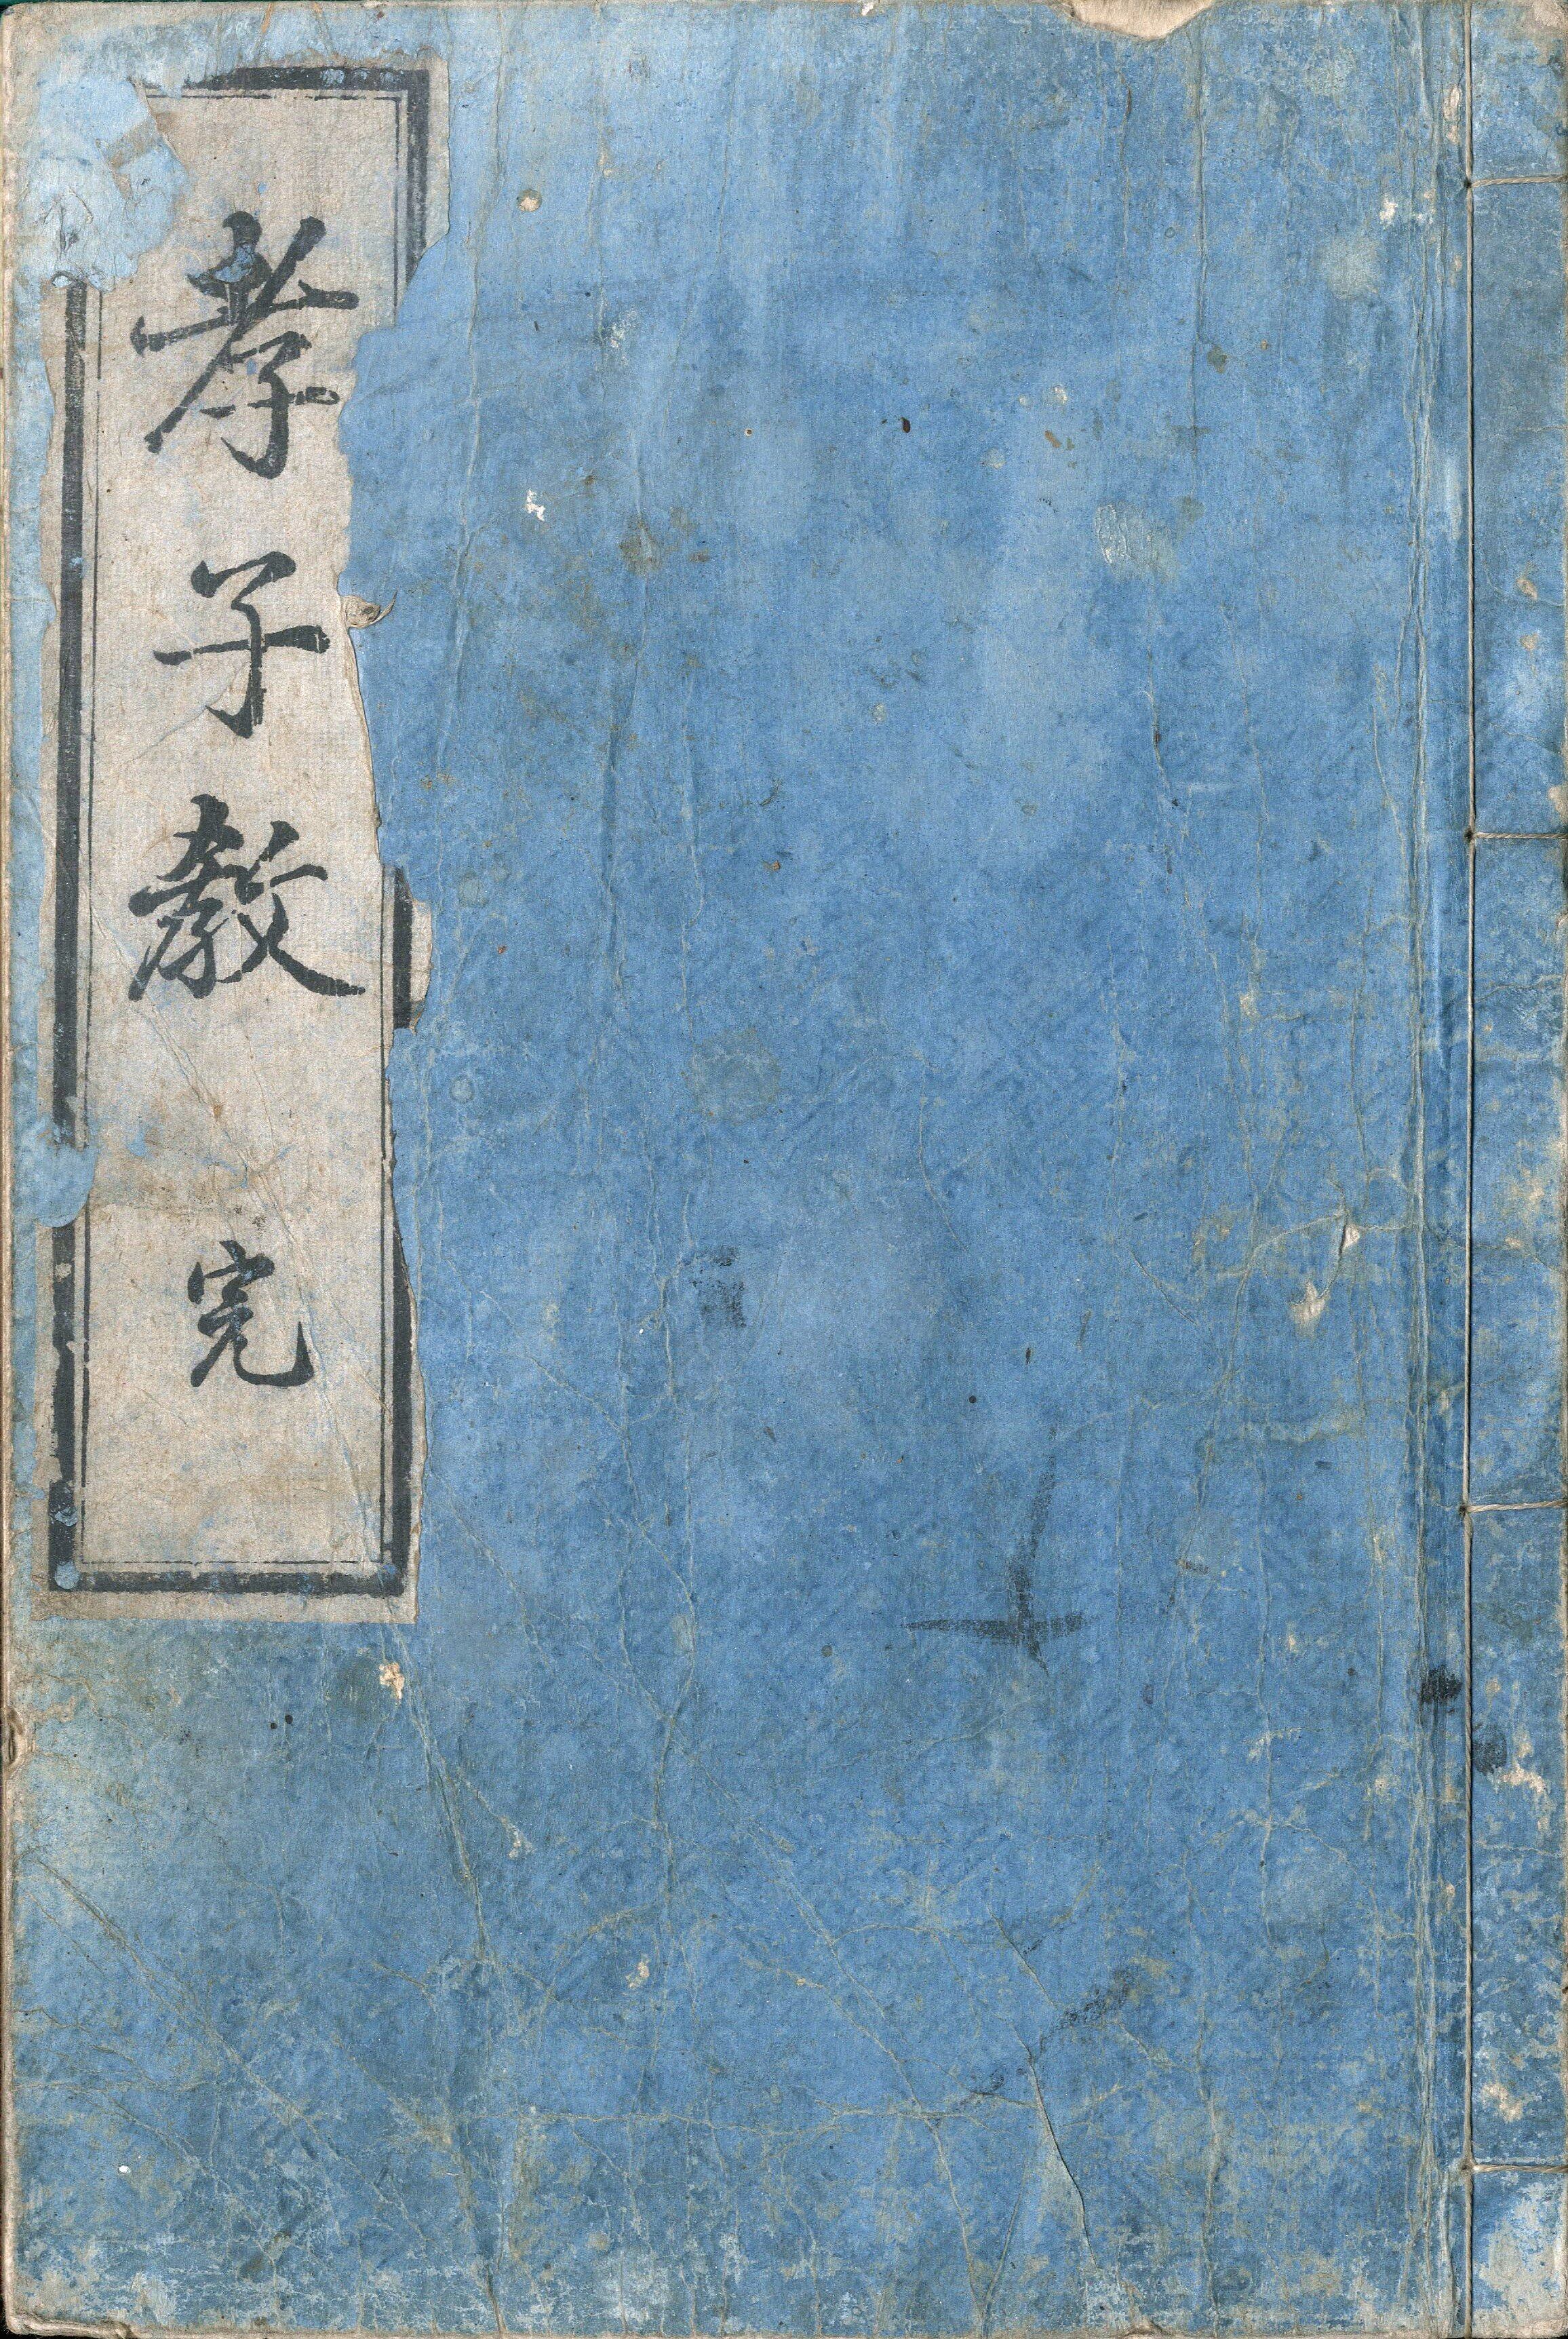 孝子教 完